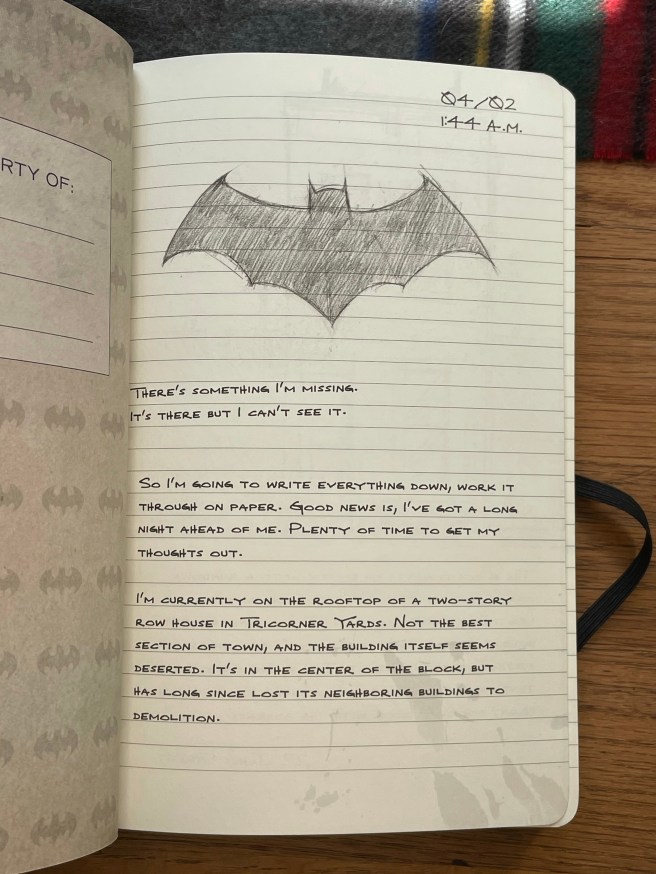 RTY OF:
04/02
1:44 A.M.
THERE'S SOMETHING I'M MISSING.
IT'S THERE BUT I CAN'T SEE IT.
SO I'M GOING TO WRITE EVERYTHING DOWN, WORK IT
THROUGH ON PAPER. GOOD NEWS IS, I'VE GOT A LONG
NIGHT AHEAD OF ME. PLENTY OF TIME TO GET MY
THOUGHTS OUT.
I'M CURRENTLY ON THE ROOFTOP OF A TWO-STORY
ROW HOUSE IN TRICORNER YARDS. NOT THE BEST
SECTION OF TOWN, AND THE BUILDING ITSELF SEEMS
DESERTED. IT'S IN THE CENTER OF THE BLOCK, BUT
HAS LONG SINCE LOST ITS NEIGHBORING BUILDINGS TO
DEMOLITION.